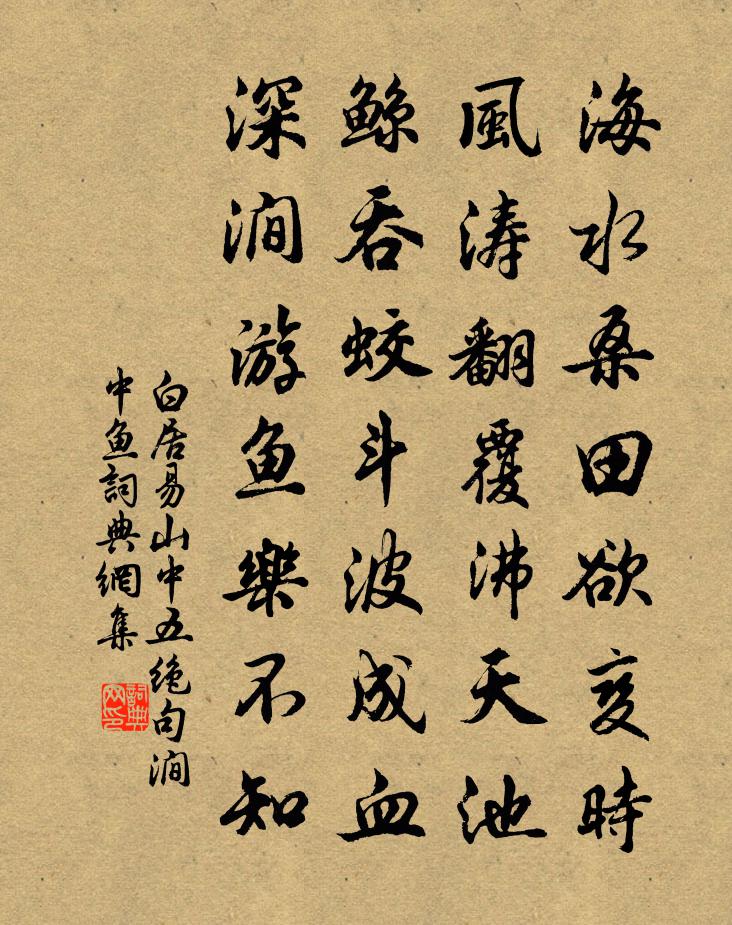 海水桑田欲变時
風涛翻覆沸天池
鲸吞蛟斗波成血
深涧游鱼樂不知
白居易山中五绝句涧
中鱼詞典網集
詞典
网印